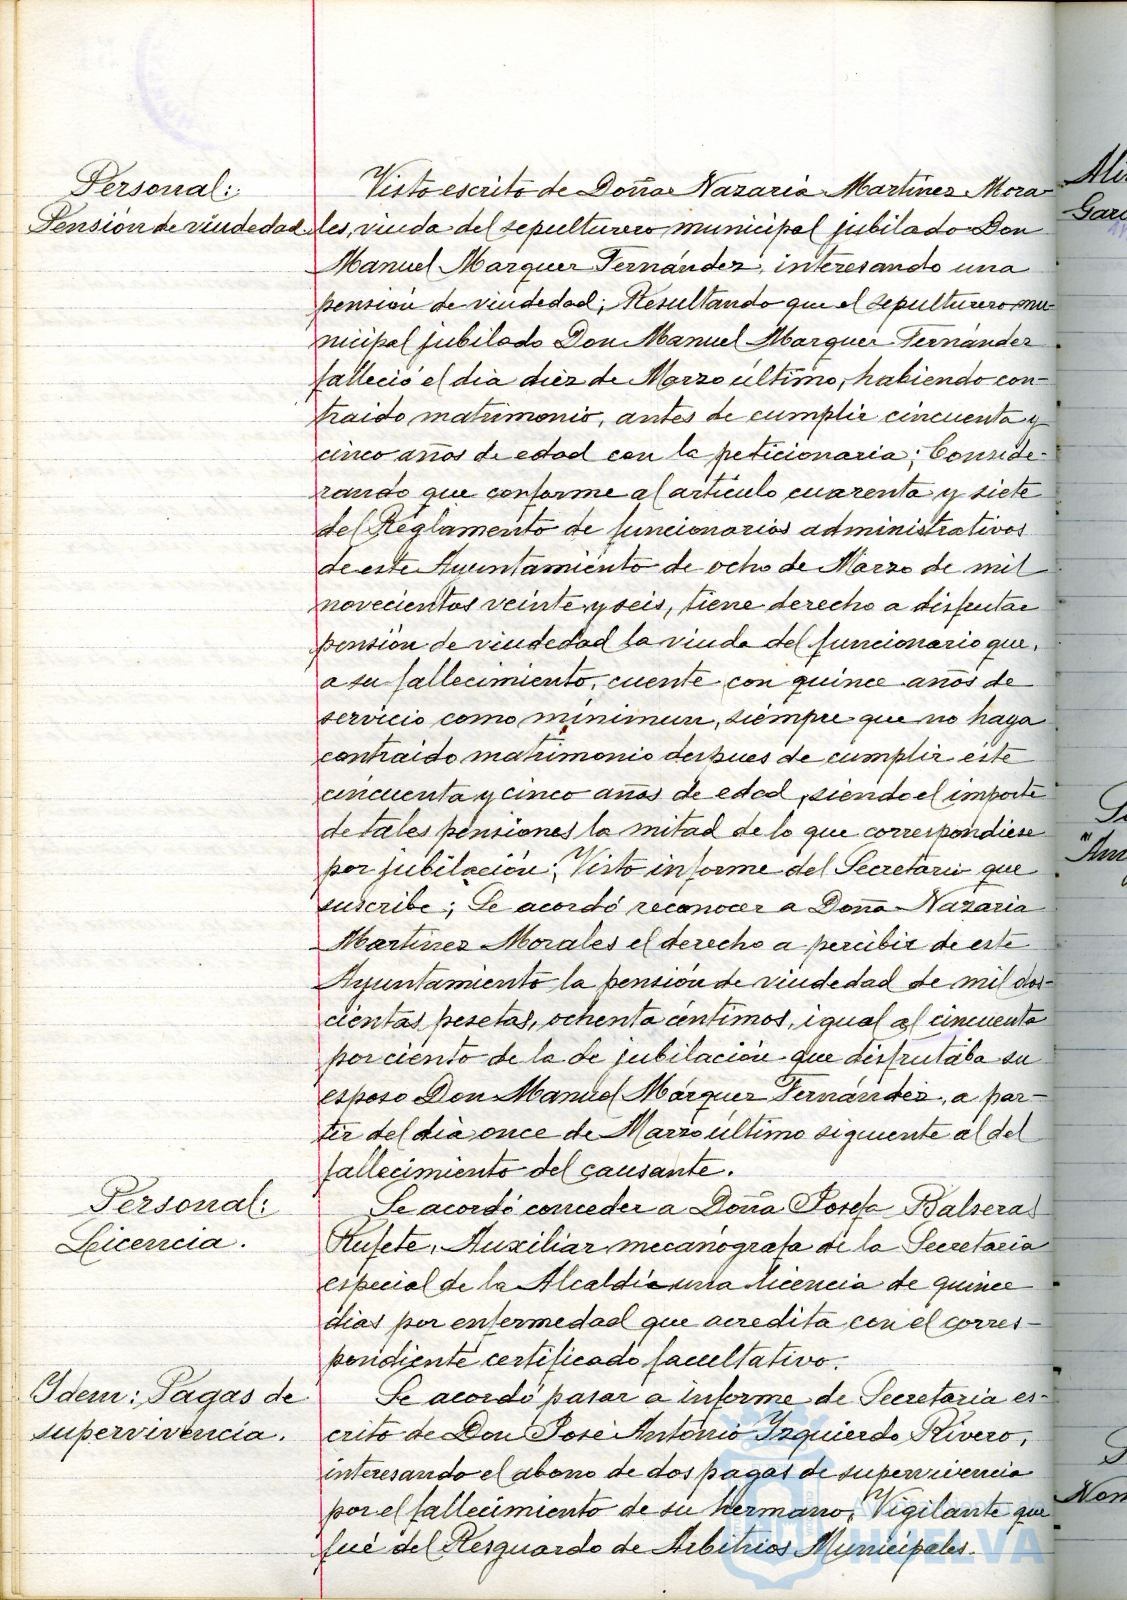 Personal:
Pensión de viudedad.
Visto escrito de Doña Nazaria Martínez Mora-
les, viuda del sepulturero municipal jubilado Don
Manuel Marquez Fernández, interesando una
pensión de viudedad; Resultando que el sepulturero mu-
nicipal jubilado Don Manuel Marquez Fernández
falleció el día diez de Marzo último, habiendo con-
traido matrimonio, antes de cumplir cincuenta y
cinco años de edad con la peticionaria; Conside-
rando que conforme al artículo cuarenta y siete
del Reglamento de funcionarios administrativos
de este Ayuntamiento de ocho de Marzo de mil
novecientos veinte y seis, tiene derecho a disfrutar
pensión de viudedad la viuda del funcionario que,
a su fallecimiento, cuente con quince años de
servicio como mínimun, siempre que no haya
contraido matrimonio despues de cumplir este
cincuenta y cinco años de edad, siendo el importe
de tales pensiones la mitad de lo que correspondiese
por jubilación; Visto informe del Secretario que
suscribe; Se acordó reconocer a Doña Nazaria
Martínez Morales el derecho a percibir de este
Ayuntamiento la pensión de viudedad de mil dos-
cientas pesetas, ochenta céntimos, igual al cincuenta
por ciento de la de jubilación que disfrutaba su
esposo Don Manuel Márquez Fernández, a par-
tir del día once de Marzo último siguiente al del
fallecimiento del causante.
Personal:
Licencia.
Se acordó conceder a Doña Josefa Balseras
Rufete, Auxiliar mecanógrafa de la Secretaría
especial de la Alcaldía una licencia de quince
días por enfermedad que acredita con el corres-
pondiente certificado facultativo.
Idem: Pagas de
supervivencia.
Se acordó pasar a informe de Secretaría es-
crito de Don José Antonio Yzquierdo Rivero,
interesando el abono de dos pagas de supervivencia
por el fallecimiento de su hermano, Vigilante que
fué del Resguardo de Arbitrios Municipales.
HUELVA